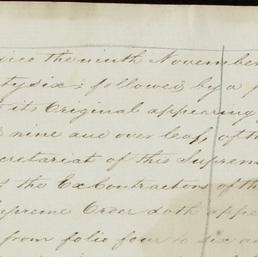 the ninth November
tysix; followed by a
its Original appearing
nine and over leaf, of th
cretariat of this Suprem
the Ex Contractors of th
upreme Order doth appe
from folio four to six an